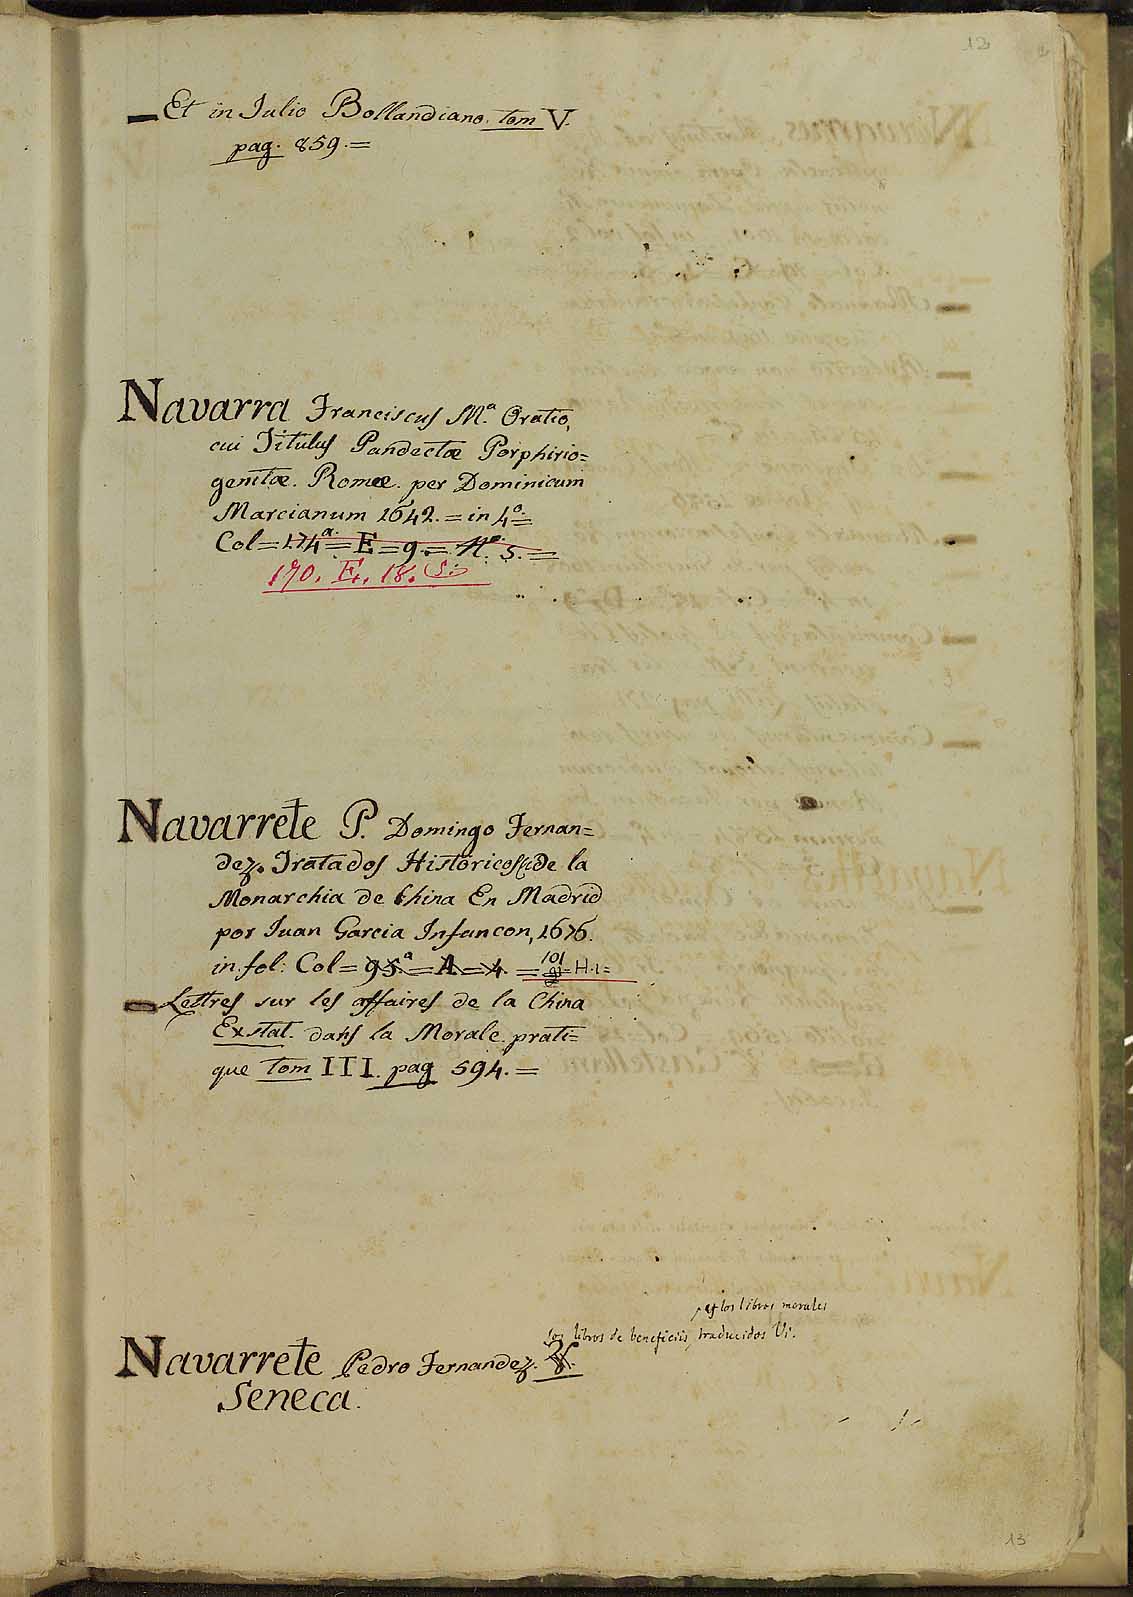 12
Et in Julio Bollandiano. tom V.
pag. 859.=
Navarra Franciscus M.ª Oratio,
cui Titulus Pandectæ Porphirio=
genitæ. Romæ. per Dominicum
Marcianum 1642.=in 4.º=
Col=174ª.=E=9.=N.º 5.=
170. E. 18. 5.
Navarrete P. Domingo Fernan=
dez. Tratados Historicos de la
Monarchia de China En Madrid
por Juan Garcia Infancon, 1676.
in fol: Col=95.ª=A=4.= 101 =H.1=
Lettres sur les affaires de la China
Exstat. dans la Morale prati=
que tom III. pag 594.=
y los libros morales
los libros de beneficiis, traducidos Vi.
Navarrete Pedro Fernandez.
Seneca.
13